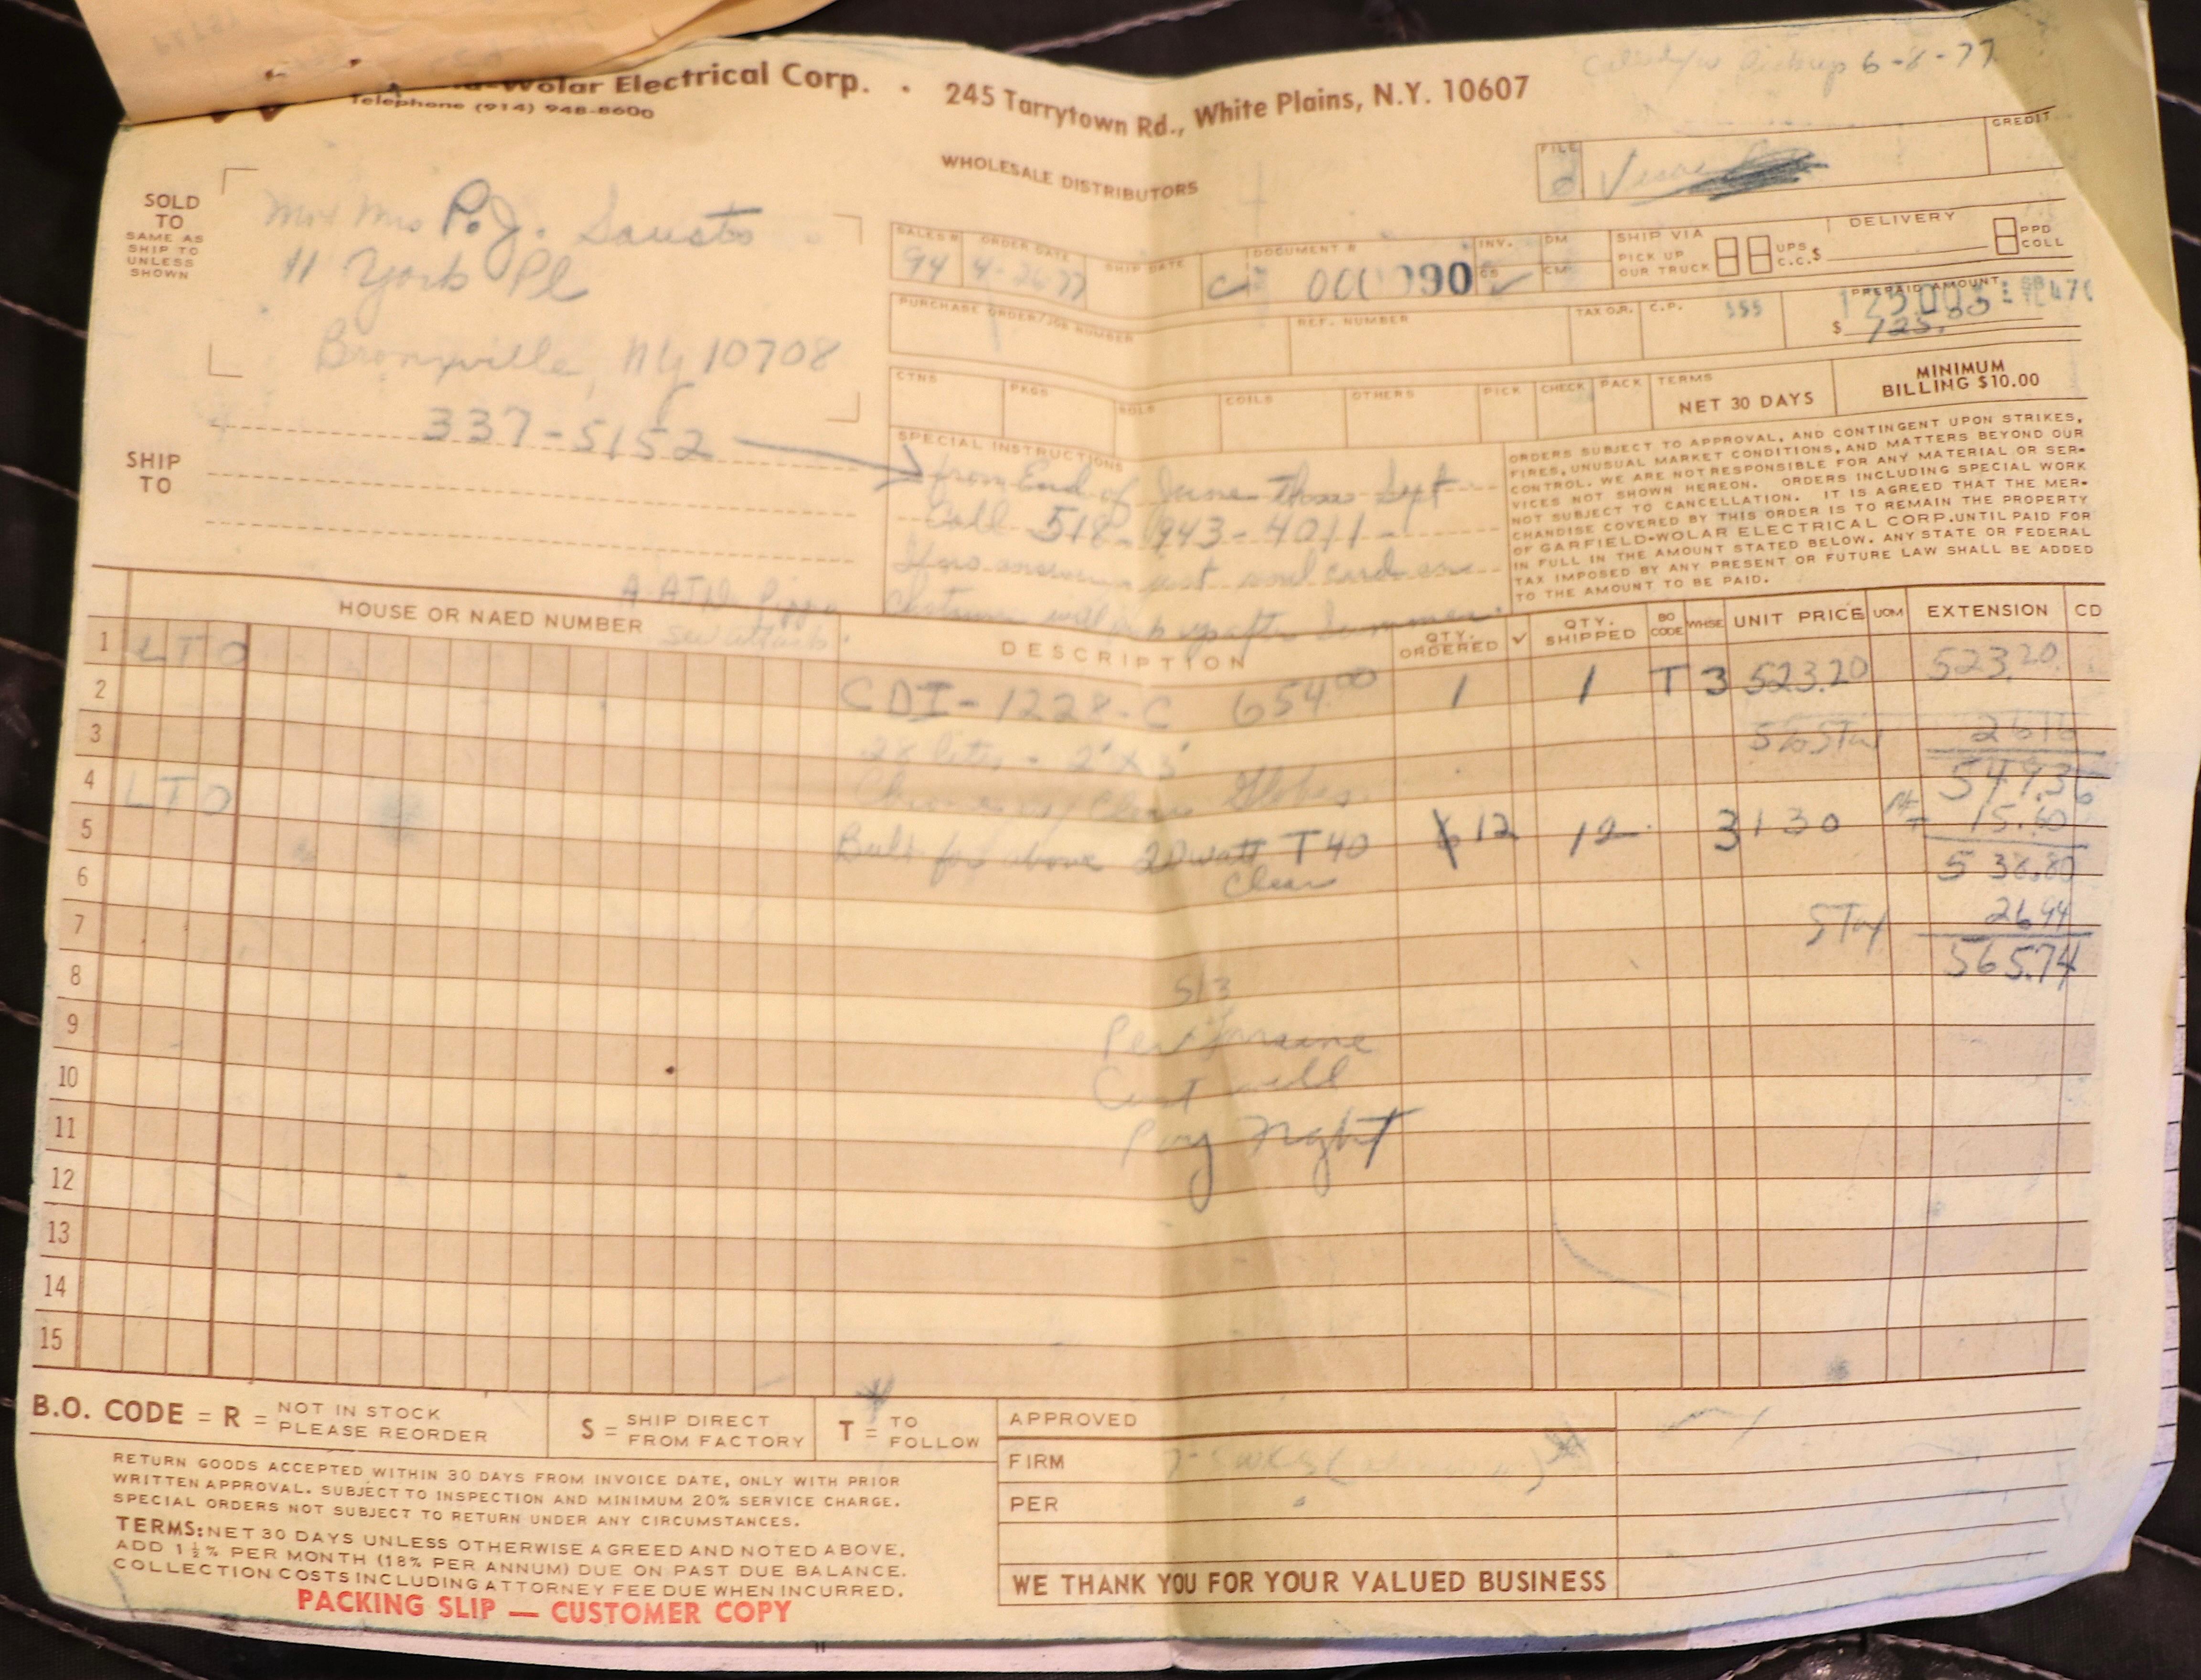 Wolar Electrical Corp. • 245 Tarrytown Rd., White Plains, N.Y. 10607
Telephone (914) 948-8600
Pickup 6-8-77
WHOLESALE DISTRIBUTORS
FILE
CREDIT
SOLD
TO
SAME AS
SHIP TO
UNLESS
SHOWN
Mr & Mrs P.J. Sausto
11 York Pl
Bronxville, NY 10708
337-5152
SHIP
TO
SALES # 94
ORDER DATE 4-26-77
SHIP DATE
DOCUMENT #
INV.
DM
CM
SHIP VIA
PICK UP
OUR TRUCK
UPS
C.C.
DELIVERY
$
PPD
COLL
PURCHASE ORDER/JOB NUMBER
REF. NUMBER
TAX O.R.
C.P.
PREPAID AMOUNT
$ 125.00
CTNS
PKGS
COILS
OTHERS
PICK
CHECK
PACK
TERMS
NET 30 DAYS
MINIMUM
BILLING $10.00
SPECIAL INSTRUCTIONS
from End of June thru Sept
Call 518-943-4011
ORDERS SUBJECT TO APPROVAL, AND CONTINGENT UPON STRIKES,
FIRES, UNUSUAL MARKET CONDITIONS, AND MATTERS BEYOND OUR
CONTROL. WE ARE NOT RESPONSIBLE FOR ANY MATERIAL OR SER-
VICES NOT SHOWN HEREON. ORDERS INCLUDING SPECIAL WORK
NOT SUBJECT TO CANCELLATION. IT IS AGREED THAT THE MER-
CHANDISE COVERED BY THIS ORDER IS TO REMAIN THE PROPERTY
OF GARFIELD-WOLAR ELECTRICAL CORP. UNTIL PAID FOR
IN FULL IN THE AMOUNT STATED BELOW. ANY STATE OR FEDERAL
TAX IMPOSED BY ANY PRESENT OR FUTURE LAW SHALL BE ADDED
TO THE AMOUNT TO BE PAID.
after Summer.
HOUSE OR NAED NUMBER
DESCRIPTION
QTY. ORDERED
✓
QTY. SHIPPED
BO CODE
WHSE
UNIT PRICE
UOM
EXTENSION
CD
1 LTO
2 CDI-1228-C 654.00 1 1 T 3 523.20 523.20
3 28 lites - 5% STax 26.16
4 LTO Clear Globes 549.36
5 Bulb for above 20 watt T40 12 12 3 1 30 15.60
6 Clear 538.80
7 STax 26.94
565.74
8
9
10
11 Pay
12
13
14
15
B.O. CODE = R = NOT IN STOCK
PLEASE REORDER
S = SHIP DIRECT
FROM FACTORY
T = TO
FOLLOW
APPROVED
FIRM
PER
RETURN GOODS ACCEPTED WITHIN 30 DAYS FROM INVOICE DATE, ONLY WITH PRIOR
WRITTEN APPROVAL. SUBJECT TO INSPECTION AND MINIMUM 20% SERVICE CHARGE.
SPECIAL ORDERS NOT SUBJECT TO RETURN UNDER ANY CIRCUMSTANCES.
TERMS: NET 30 DAYS UNLESS OTHERWISE AGREED AND NOTED ABOVE.
ADD 1½% PER MONTH (18% PER ANNUM) DUE ON PAST DUE BALANCE.
COLLECTION COSTS INCLUDING ATTORNEY FEE DUE WHEN INCURRED.
WE THANK YOU FOR YOUR VALUED BUSINESS
PACKING SLIP — CUSTOMER COPY